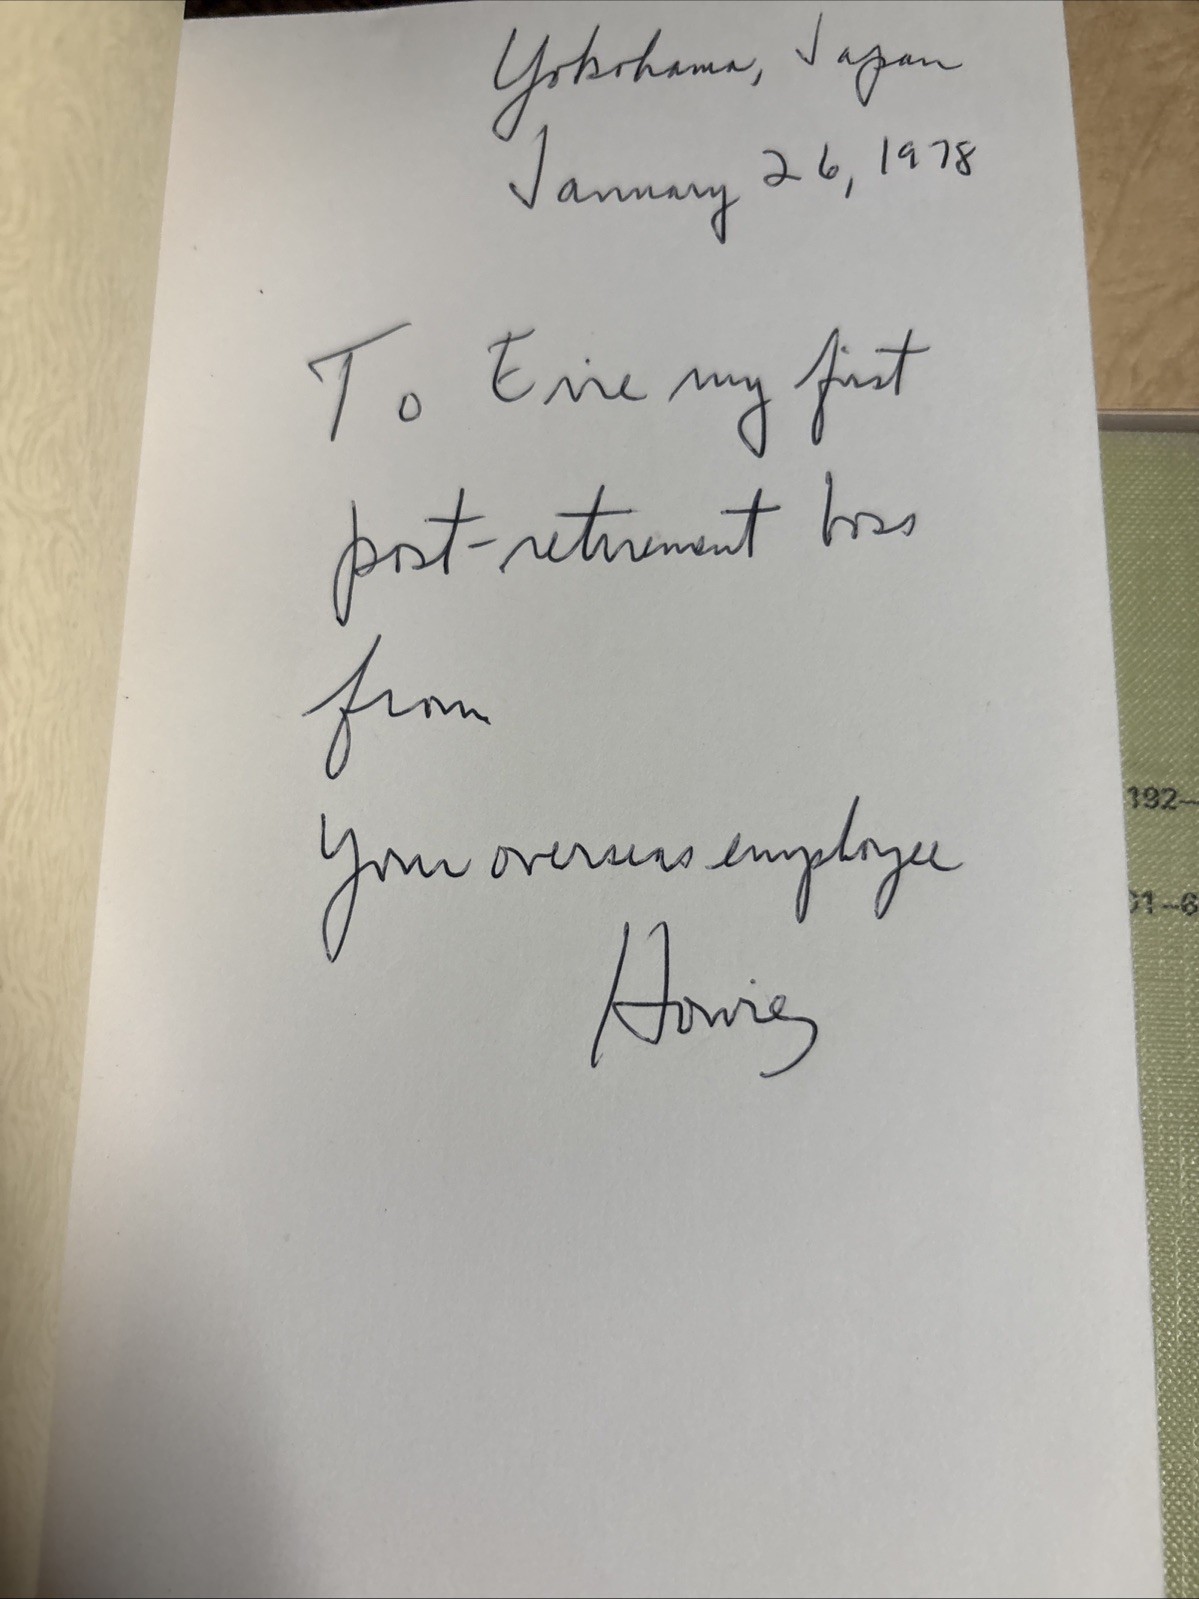 Yokohama, Japan
January 26, 1978
To Eire my first
post-retirement boss
from
Your overseas employee
Howie
192-
01-6